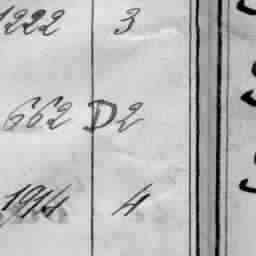 1222 3
662 D2
1914 4